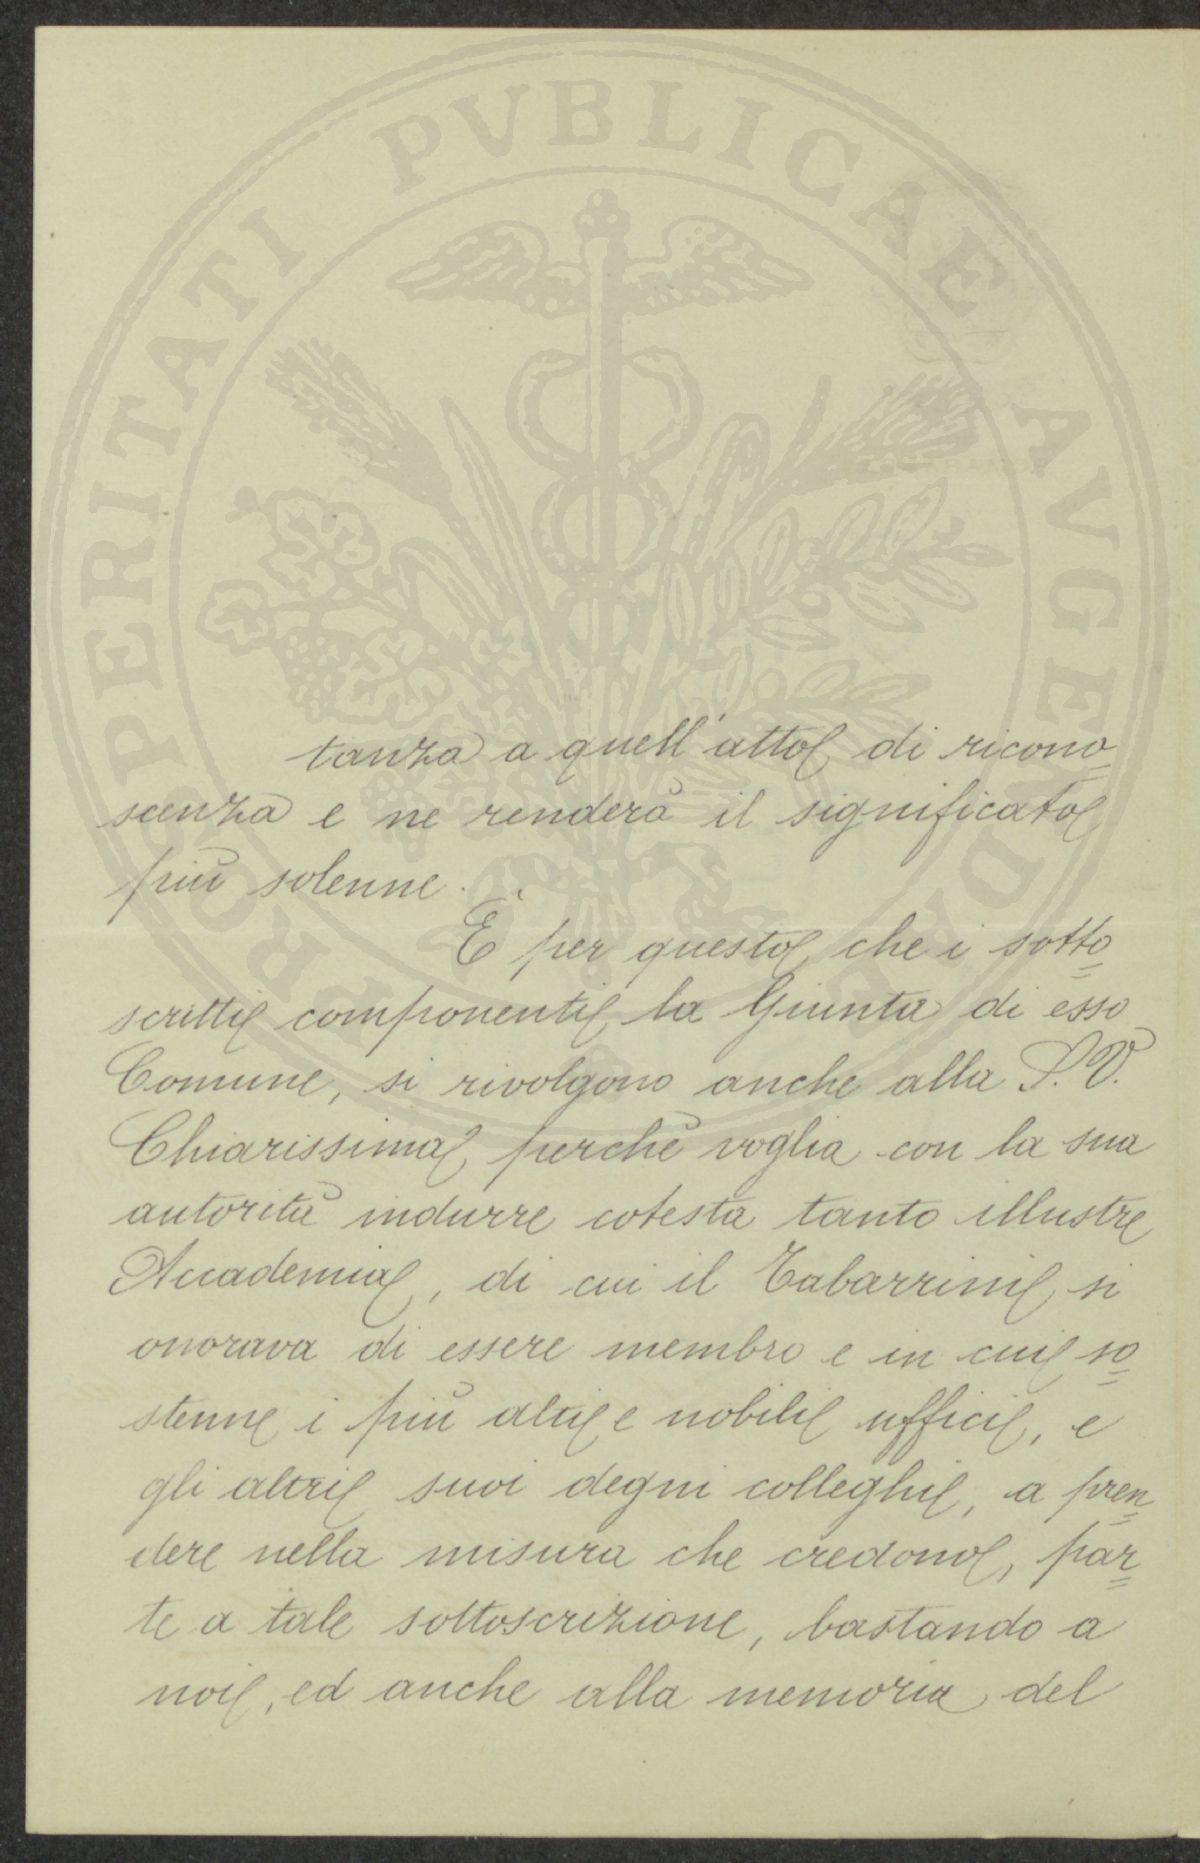 PROSPERITATI PVBLICAE AVGENDAE
tanza a quell'atto di ricono=
scenza e ne renderà il significato
più solenne.
È per questo che i sotto=
scritti componenti la Giunta di esso
Comune, si rivolgono anche alla S.V.
Chiarissima perchè voglia con la sua
autorità indurre cotesta tanto illustre
Accademia, di cui il Tabarrini si
onorava di essere membro e in cui so=
stenne i più alti e nobili uffici, e
gli altri suoi degni colleghi, a pren=
dere nella misura che credono, par=
te a tale sottoscrizione, bastando a
noi, ed anche alla memoria del